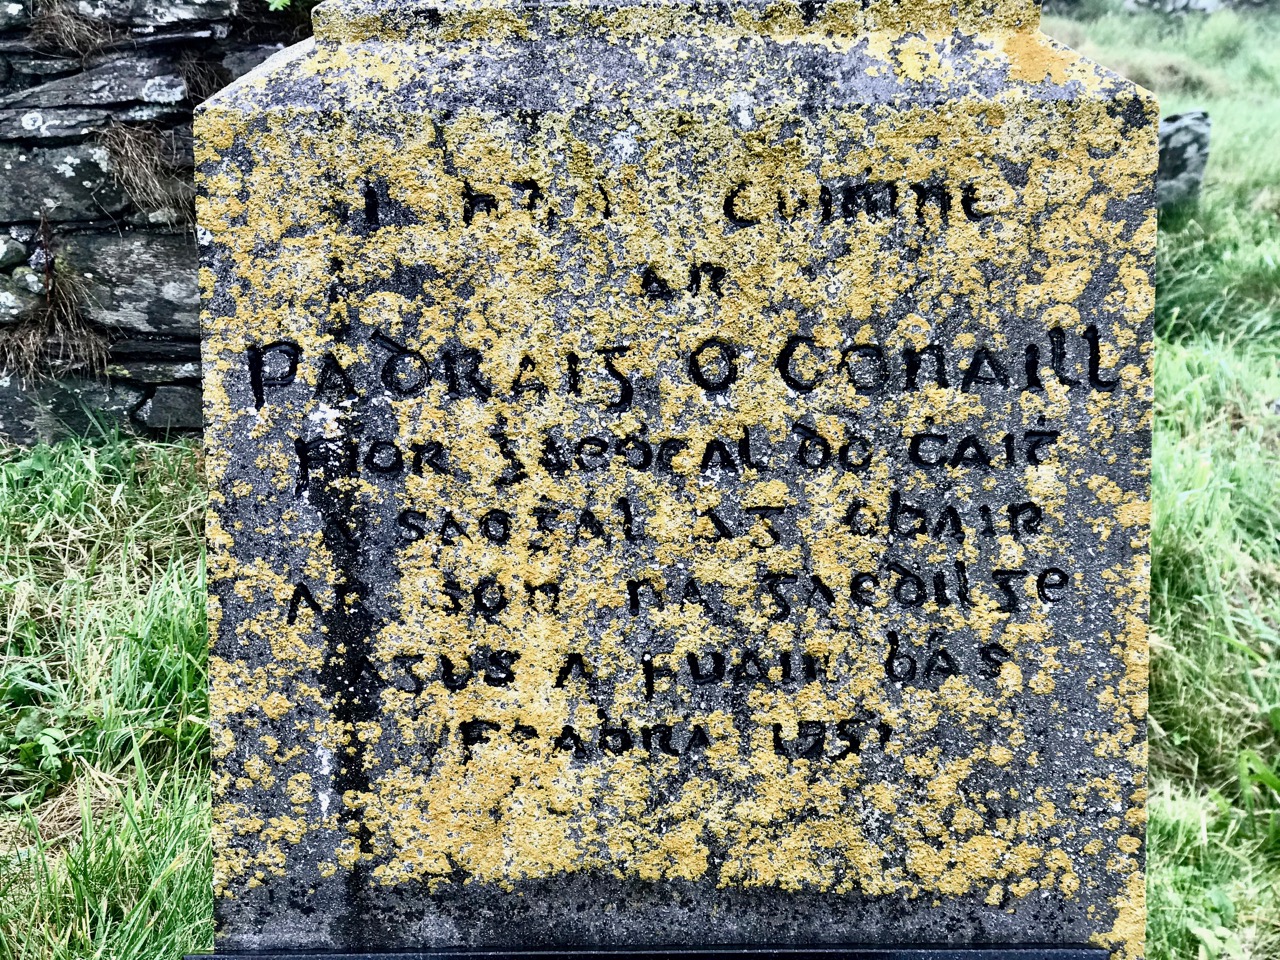 I nDíl Cuimne
AR
PÁDRAIG Ó CONAILL
Fíor Gaeḋeal do Ċaiṫ
A SAOĠAL AG OBAIR
AR SON NA GAEḊILGE
AGUS A FUAIR BÁS
FEABRA 195